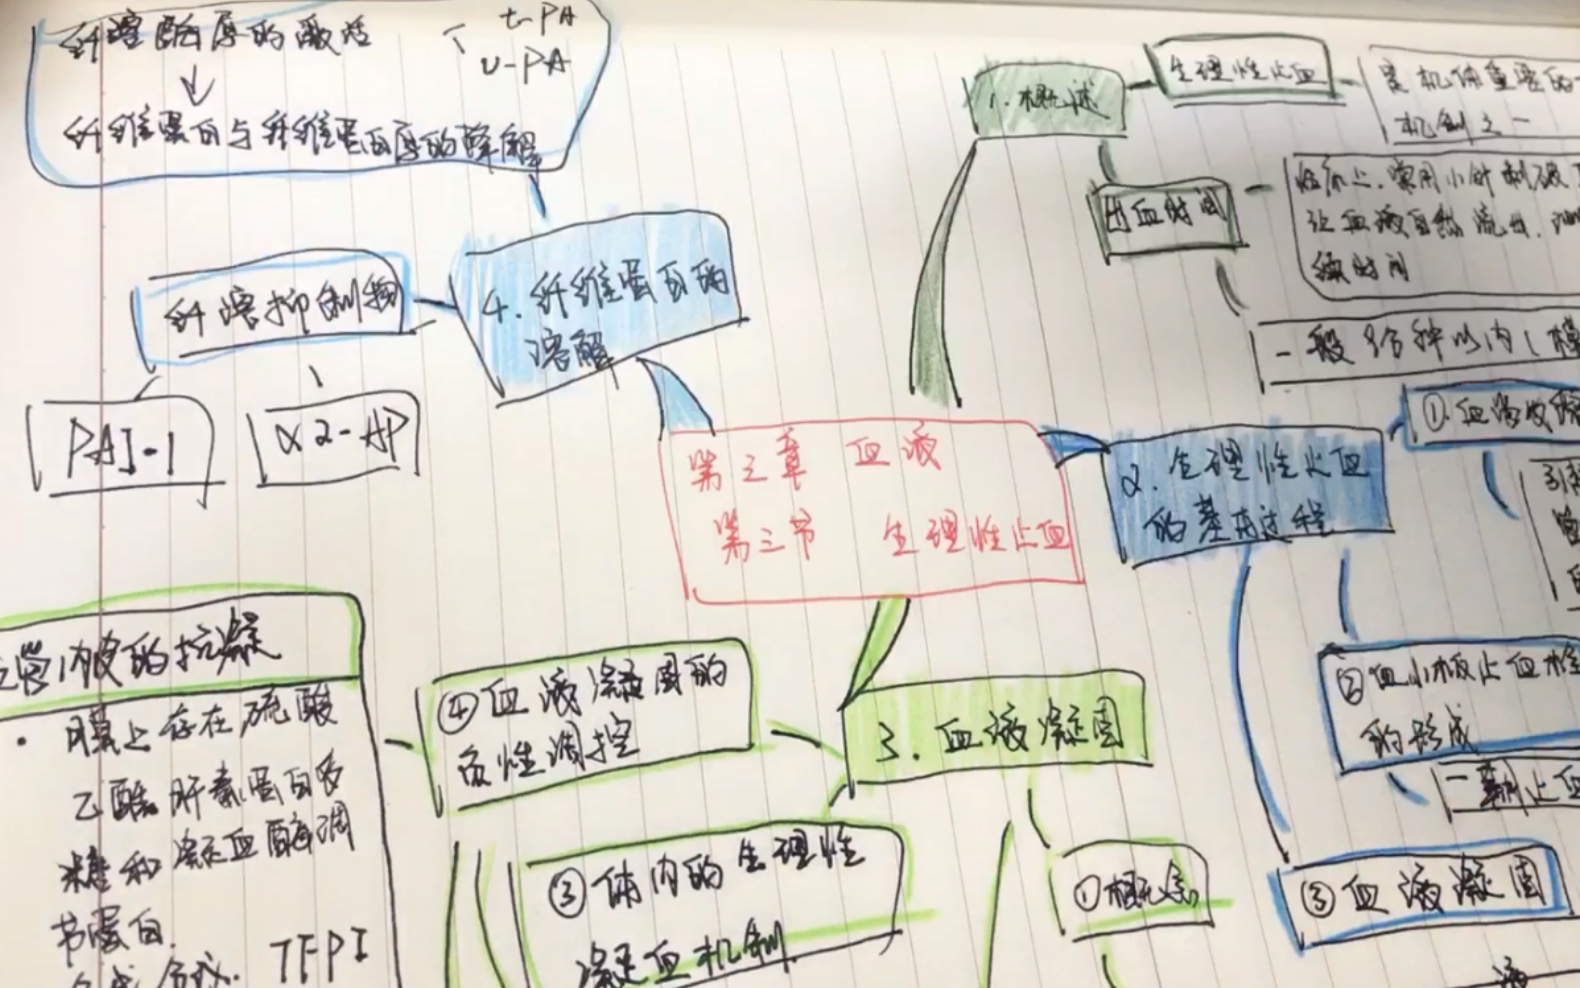 纤溶酶原的激活
t-PA
u-PA
纤维蛋白与纤维蛋白原的降解
4.纤维蛋白的
溶解
纤溶抑制物
PAI-1
α2-AP
第三章 血液
第三节 生理性止血
1.概述
生理性止血
是机体重要的
机制之一
出血时间
临床上,常用小针刺破
让血液自然流出,
续时间
一般 9分钟以内(模
2.生理性止血
的基本过程
①.血管收缩
②血小板止血栓
的形成
止血
③血液凝固
3.血液凝固
①概念
③体内的生理性
凝血机制
④血液凝固的
负性调控
血管内皮的抗凝
·膜上存在硫酸
乙酰肝素蛋白多
糖和凝血酶调
节蛋白.
TFPI